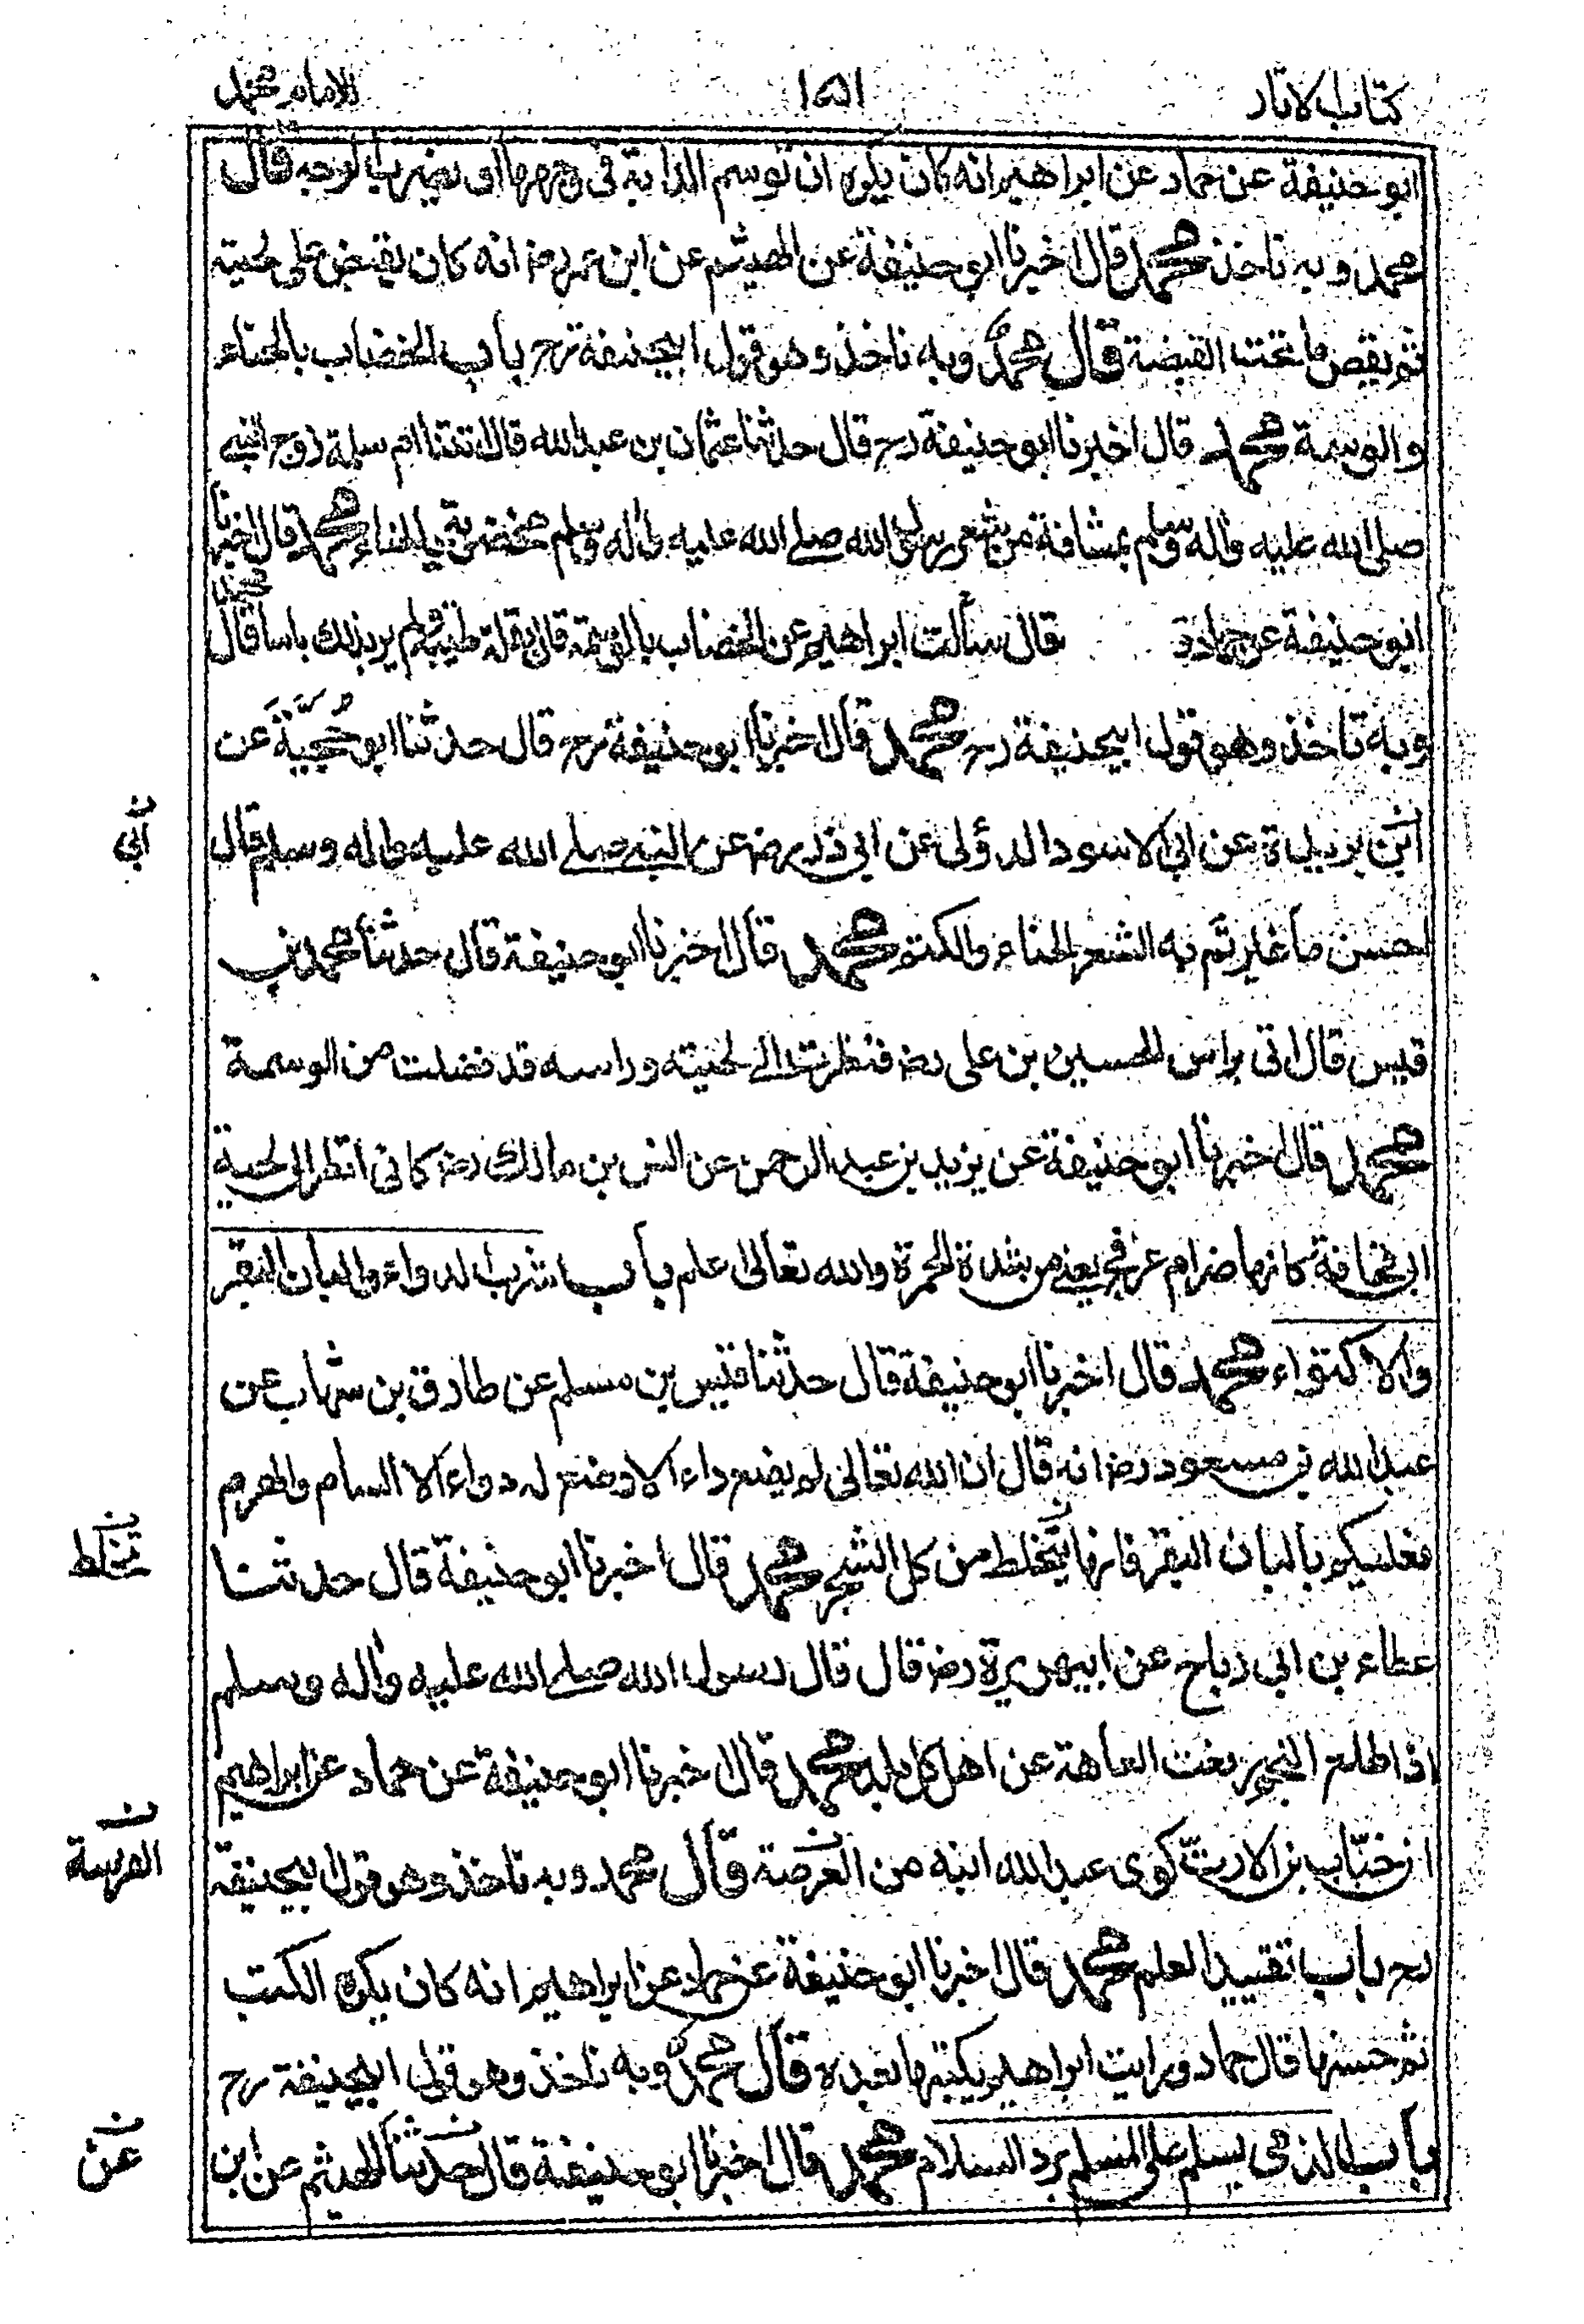 كتاب الاثار ١٥١ للامام محمد
ابو حنيفة عن حماد عن ابراهيم انه كان يكره ان توسم الدابة فى وجهها او يضرب الوجه قال
محمد وبه ناخذ محمد قال اخبرنا ابو حنيفة عن الهيثم عن ابن عمر رضـ انه كان يقبض على لحيته
ثم يقص ما تحت القبضة قال محمد وبه ناخذ وهو قول ابيحنيفة رحـ باب الخضاب بالحناء
والوسمة محمد قال اخبرنا ابو حنيفة رحـ قال حدثنا عثمان بن عبد الله قال اتتنا ام سلمة زوج النبى
صلى الله عليه واله وسلم بمشاقة من شعر رسول الله صلے الله عليه واله وسلم مخضوبة بالحناء محمد قال اخبرنا
ابو حنيفة عن حماد قال سألت ابراهيم عن الخضاب بالوسمة قال بقلة طيبة ولم ير بذلك باسا قال محمد
وبه ناخذ وهو قول ابيحنيفة رحـ محمد قال اخبرنا ابو حنيفة رحـ قال حدثنا ابو حُجَيَّةَ عن
ابن بريدة عن ابى الاسود الدؤلى عن ابى ذر رضـ عن النبى صلے الله عليه واله وسلم قال
ابى
احسن ما غيرتم به الشعر الحناء والكتم محمد قال اخبرنا ابو حنيفة قال حدثنا محمد بن
قيس قال اتى براس الحسين بن على رضـ فنظرت الى لحيته وراسه قد فضلت من الوسمة
محمد قال اخبرنا ابو حنيفة عن يزيد بن عبد الرحمن عن انس بن مالك رضـ كانى انظر الى لحية
ابى قحافة كانها ضرام عرفج يعنى من شدة الحمرة والله تعالى اعلم باب شرب الدواء والبان البقر
والاكتواء محمد قال اخبرنا ابو حنيفة قال حدثنا قيس بن مسلم عن طارق بن شهاب عن
عبد الله بن مسعود رضـ انه قال ان الله تعالى لم يضع داء الا وضع له دواء الا السام والهرم
فعليكم بالبان البقر فانها تخلط من كل الشجر محمد قال اخبرنا ابو حنيفة قال حدثنا
تختلط
عطاء بن ابى رباح عن ابيهريرة رضـ قال قال رسول الله صلے الله عليه واله وسلم
اذا طلع النجم رفعت العاهة عن اهل كل بلد محمد قال اخبرنا ابو حنيفة عن حماد عن ابراهيم
ان خبّاب بن الارتّ كوى عبد الله ابنه من الفرصة قال محمد وبه ناخذ وهو قول ابيحنيفة
الفرسة
رحـ باب تقييد العلم محمد قال اخبرنا ابو حنيفة عن حماد عن ابراهيم انه كان يكره الكتب
ثم حسنها قال حماد ورايت ابراهيم يكتبها بعده قال محمد وبه ناخذ وهو قول ابيحنيفة رحـ
باب الذمى يسلم على المسلم برد السلام محمد قال اخبرنا ابو حنيفة قال حدثنا الهيثم عن ابن
عن